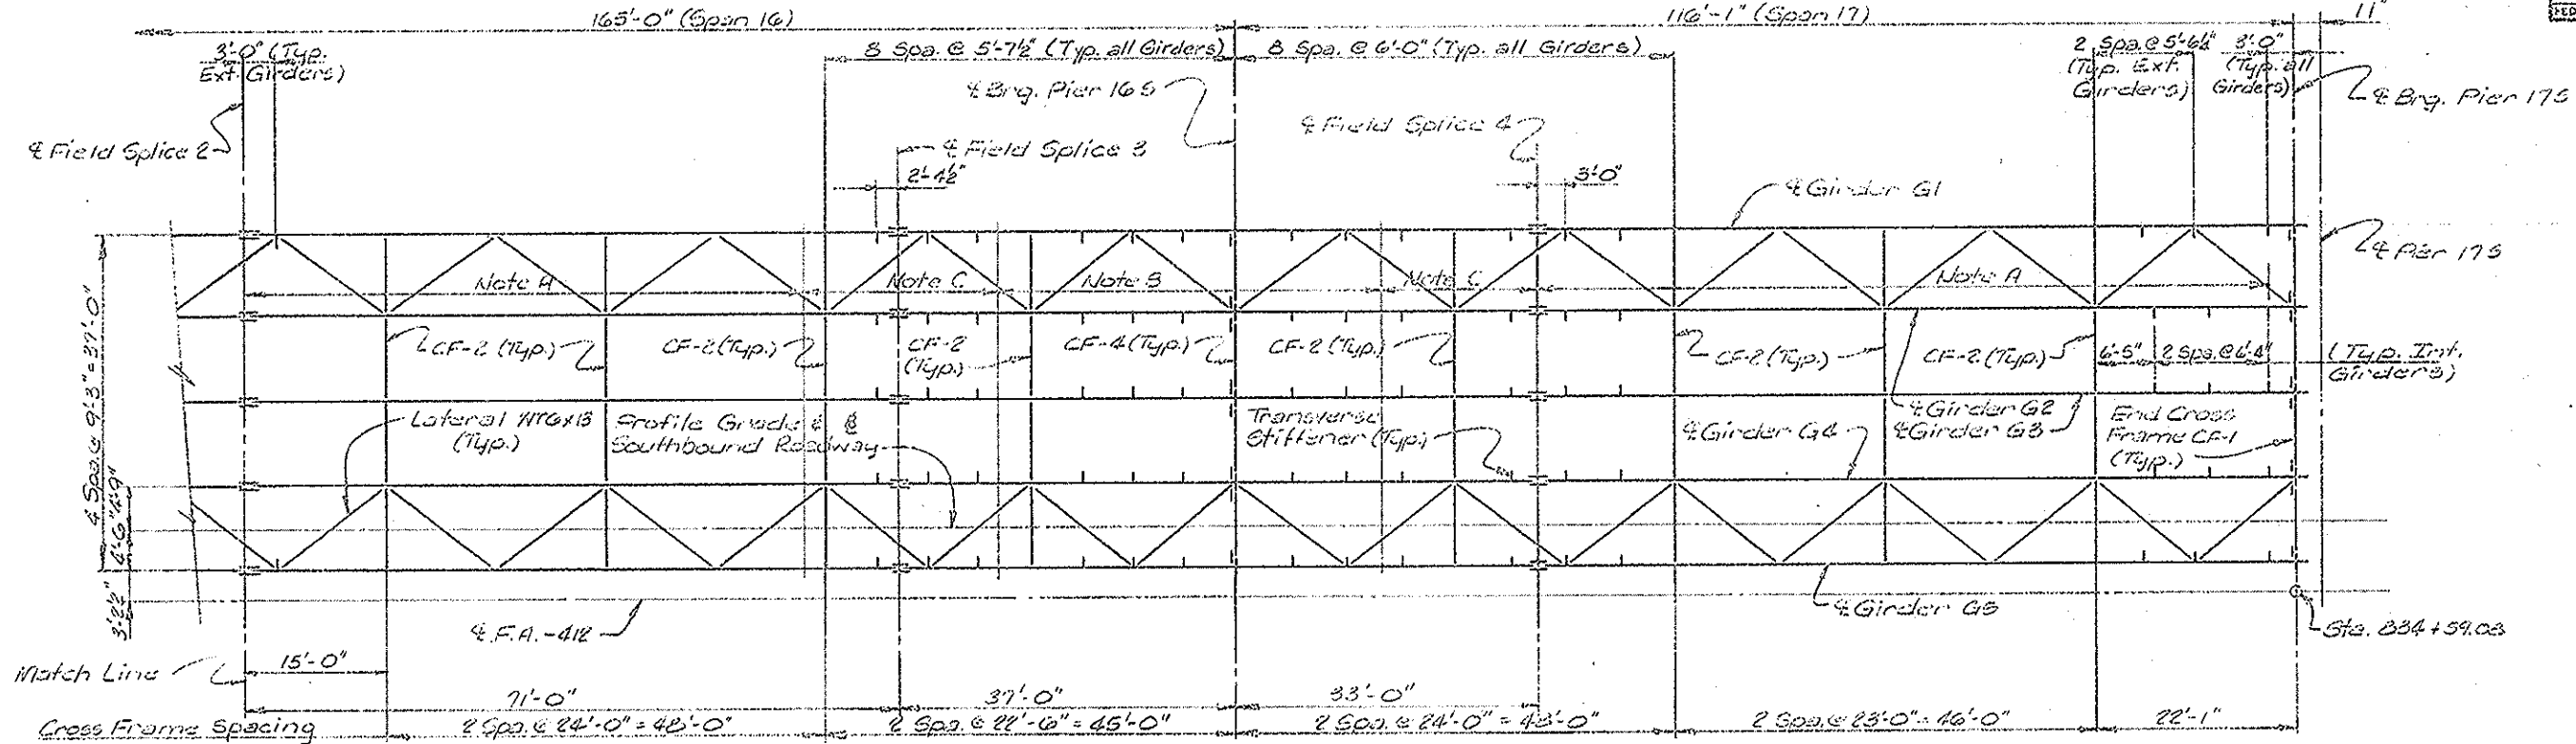 165'-0" (Span 16)
116'-1" (Span 17)
11"
3'-0" (Typ.
Ext. Girders)
8 Spa. @ 5'-7½" (Typ. all Girders)
8 Spa. @ 6'-0" (Typ. all Girders)
2 Spa. @ 5'-6½"
(Typ. Ext.
Girders)
3'-0"
(Typ. all
Girders)
℄ Brg. Pier 16 S
℄ Brg. Pier 17S
℄ Field Splice 2
℄ Field Splice 3
℄ Field Splice 4
2'-4½"
3'-0"
℄ Girder G1
℄ Pier 17S
Note A
Note C
Note B
Note C
Note A
CF-2 (Typ.)
CF-2 (Typ.)
CF-2
(Typ.)
CF-4 (Typ.)
CF-2 (Typ.)
CF-2 (Typ.)
CF-2 (Typ.)
6'-5"
2 Spa. @ 6'-4"
(Typ. Int.
Girders)
4 Spa. @ 9'-3" = 37'-0"
Lateral WT6x13
(Typ.)
Profile Grade & ℄
Southbound Roadway
Transverse
Stiffener (Typ.)
℄ Girder G2
℄ Girder G3
℄ Girder G4
End Cross
Frame CF-1
(Typ.)
4'-6"
3'-2½"
℄ F.A.-412
℄ Girder G5
Sta. 334+59.08
Match Line
15'-0"
71'-0"
37'-0"
33'-0"
Cross Frame Spacing
2 Spa. @ 24'-0" = 48'-0"
2 Spa. @ 22'-6" = 45'-0"
2 Spa. @ 24'-0" = 48'-0"
2 Spa. @ 23'-0" = 46'-0"
22'-1"